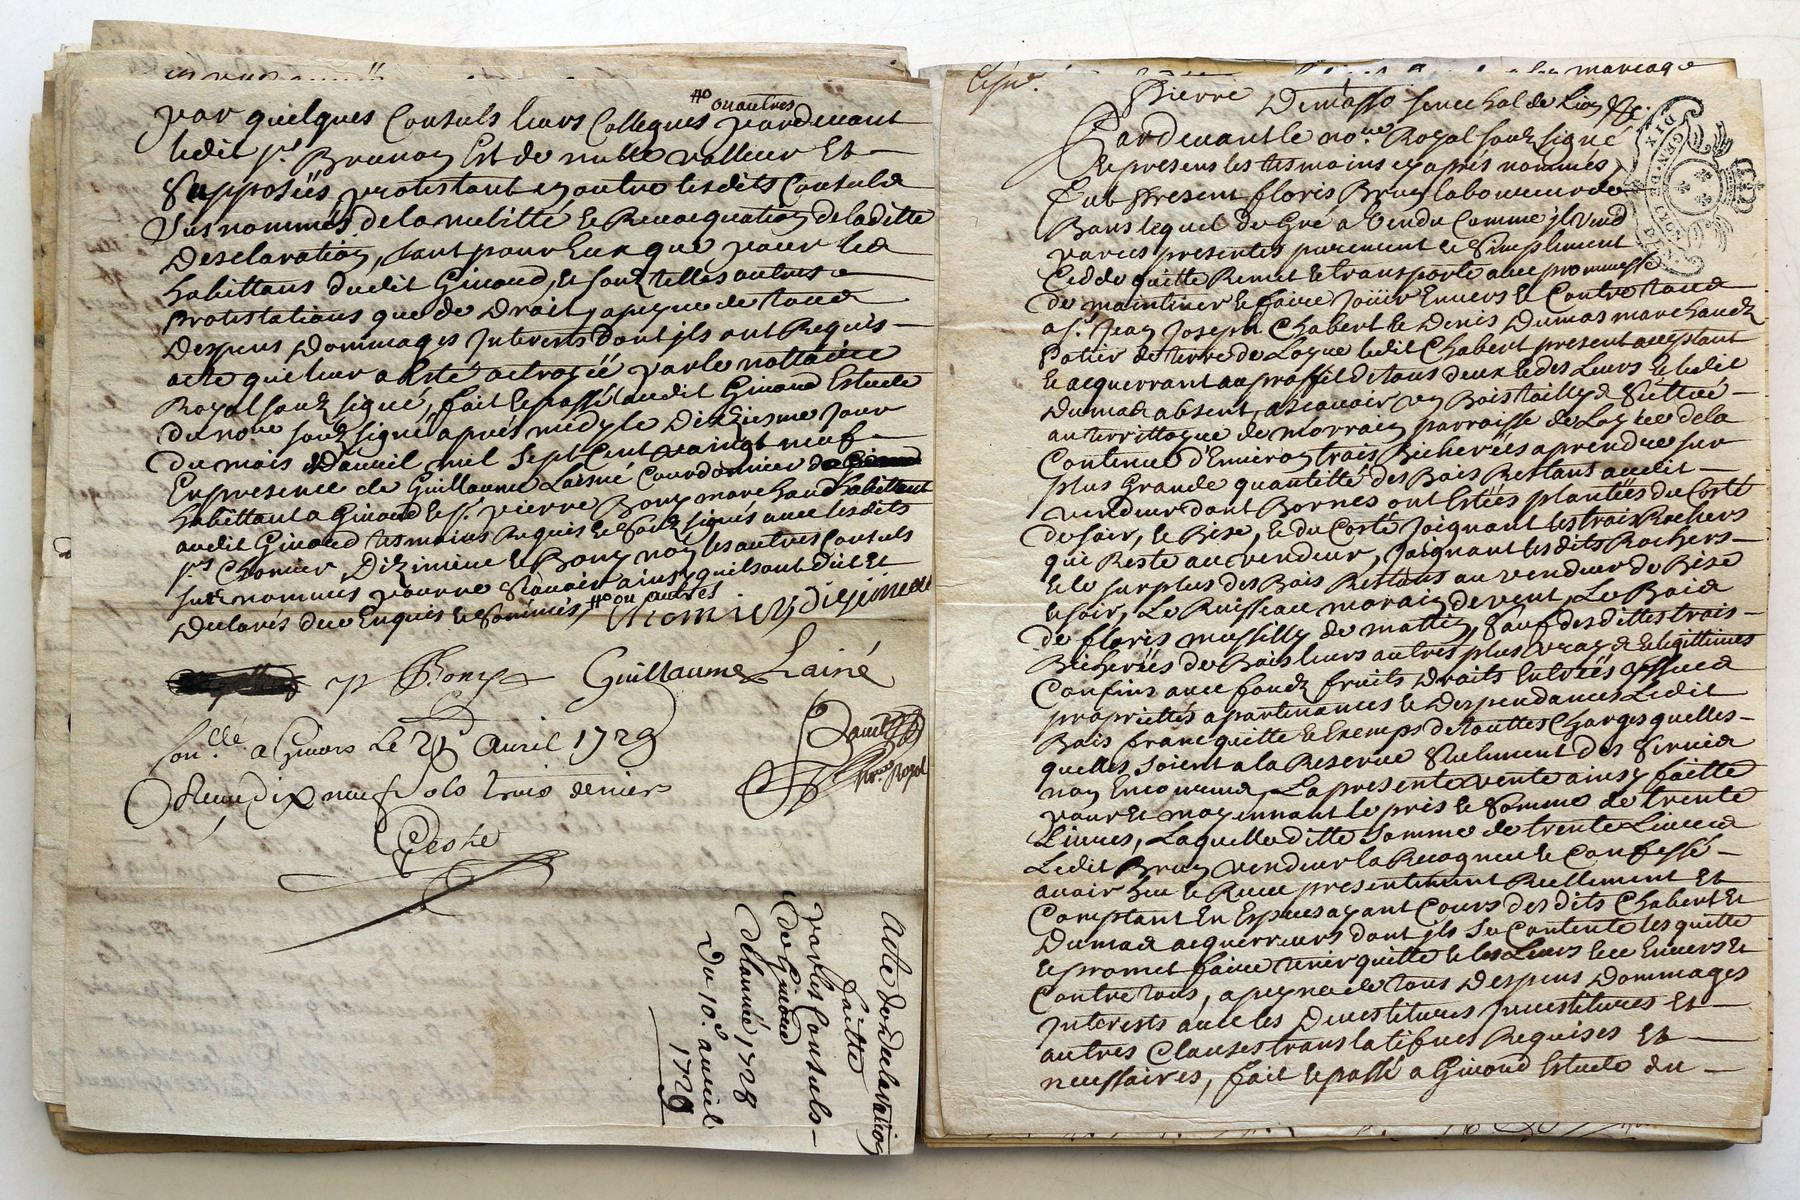 par quelques Consuls leurs Collegues #o ou autres pardevant
ledit sr. Brunon Est de nulle valleur Et
Supposéës protestant en outre lesdits Consuls
susnommés de la nulitté de ladite
Desclaration, tant pour Eux que pour les
habittans dudit Givord, et sous telles autres
protestations que de Droit, a peyne de tous
Despens Dommages Interests Dont jls ont Requis
acte que leur a Esté actroyéë par le nottaire
Royal souz signé, fait et passé audit Givord Estude
du nore. souz signé aprés midy le Dixiesme jour
du mois d'avril mil sept Cent vaingt neuf
En presence de Guillaume Laisné Courdonnier
habittant a Givord et sr. pierre Bony marchand habittant
audit Givord tesmoins Requis et souz signés avec lesdits
srs. Chomier, Dizimieu et Bony non les autres Consuls
sus nommés pour ne Scavoir ainsy quils ont dit et
Declarés de ce Enquis et Sommés, #o ou autres
Chomier dizimieu
p Bony Guillaume Lainé
Con.llé a Givors Le 21 Avril 1729
Receu Dix neuf sols trois deniers
nore Royal
Acte de declaration
faitte
par les Consuls
de Givord
de lannée 1728
Du 10.e avril
1729
mariage
Pierre Demasso senechal de Lion
Pardevant le nore. Royal souz signé
et presens les tesmoins cy aprés nommés
fut Present floris Brun laboureur de
Bans lequel de Gré a Vendu Comme jl vend
par ces presentes purement et Simplement
Cedde quitte Remet et transporte avec prommesse
de maintenir et faire joüir Envers et Contre tous
a sr. Jean Joseph Chabert et Denis Dumas marchands
Potier de terre de Loyre ledit Chabert present acceptant
et acquerrant au proffit de tous deux et des Leurs et ledit
Dumas absent, a scavoir un Bois taillys Scittué
au territtoyre de morrain parroisse de Loyre de la
Contenue d'Environ trois Bicheréës a prendre sur
plus Grande quantitté des Bois Restans audit
vendeur dont Bornes ont Estéës plantéës du Costé
de soir, et Bize, et du Costé joignant les trois Rochers
qui Reste au vendeur, joignant lesdits Rochers
et le surplus des Bois Restans au vendeur de Bize
et soir, Le Ruisseau morain de vent, Le Bois
de floris mussilly de mattin, sauf desdittes trois
Bicheréës de Bois leurs autres plus vrays et legittimes
Confins avec fondz fruits Droits Entréës yssues
proprietés apartenances et Despendances Ledit
Bois franc quitte et Exemps de touttes Charges quelles
quelles soient a la Reserve Seulement des Servis
non Encourus, La presente vente ainsy faitte
pour Et moyennant le pris et Somme de trente
Livres, Laquelle ditte Somme de trente Livres
Ledit Brun vendeur la Recogneu et Confessé
avoir heu et Receu presentement Reellement Et
Comptant En Especes ayant Cours des dits Chabert et
Dumas acquerreurs dont jls Se Contente les quitte
et promet faire tenir quitte et les Leurs Envers et
Contre tous, a peyne de tous Despens Dommages
Interests avec les Devestitures Jnvestitures Et
autres Clauses translatifves Requises Et
necessaires, fait et passé a Givord Estude du